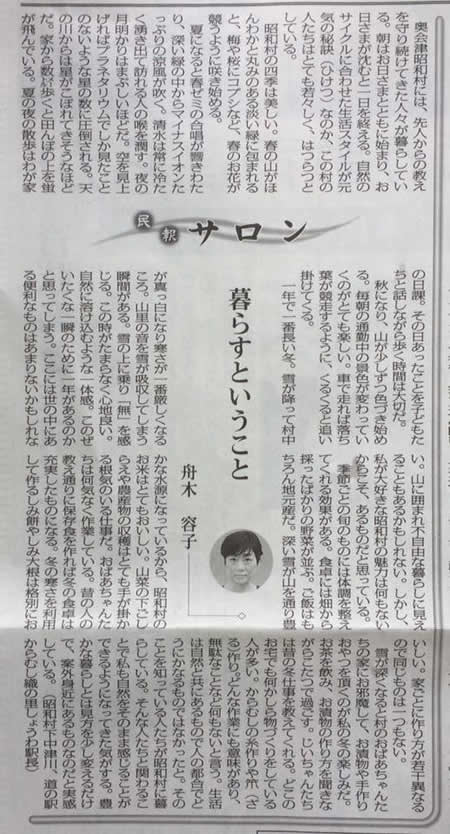 民報サロン
暮らすということ
舟木 容子
奥会津昭和村には、先人からの教え
を守り続けてきた人々が暮らしてい
る。朝はお日さまとともに始まり、お
日さまが沈むと一日を終える。自然の
サイクルに合わせた生活スタイルが元
気の秘訣（ひけつ）なのか、この村の
人たちはとても若々しく、はつらつと
している。
昭和村の四季は美しい。春の山がほ
んわかと丸みのある淡い緑に包まれる
と、梅や桜にコブシなど、春のお花が
競うように咲き始める。
夏になると春ゼミの合唱が響きわた
り、深い緑の中からマイナスイオンた
っぷりの涼風が吹く。清水は常に冷た
く湧き出て訪れる人の喉を潤す。夜の
月明かりはまぶしいほどだ。空を見上
げればプラネタリウムでしか見たこと
のないような星の数に圧倒される。天
の川からは星がこぼれてきそうなほど
だ。家から数歩歩くと田んぼの上を蛍
が飛んでいる。夏の夜の散歩はわが家
の日課。その日あったことを子どもた
ちと話しながら歩く時間は大切だ。
秋になり、山が少しずつ色づき始め
る。毎朝の通勤中の景色が変わってい
くのがとても楽しい。車で走れば落ち
葉が競走するように、くるくると追い
掛けてくる。
一年で一番長い冬。雪が降って村中
が真っ白になり寒さが一番厳しくなる
ころ。山里の音を雪が吸収してしまう
瞬間がある。雪の上に乗り「無」を感
じる。この時がたまらなく心地良い。
自然に溶け込むような一体感。このぜ
いたくな一瞬のために一年があるのか
と思ってしまう。ここには世の中にあ
る便利なものはあまりないかもしれな
い。山に囲まれ不自由な暮らしに見え
ることもあるかもしれない。しかし、
私が大好きな昭和村の魅力は何もない
からこそ、あるものだと思っている。
季節ごとの旬のものには体調を整え
てくれる効果がある。食卓には畑から
採ったばかりの野菜が並ぶ。ご飯はも
ちろん地元産だ。深い雪が山を通り豊
かな水源になっているから、昭和村の
お米はとてもおいしい。山菜の下ごし
らえや農産物の収穫はとても手が掛か
る根気のいる仕事だ。おばあちゃんた
ちは何気なく作業している。昔の人の
教え通りに保存食を作れば冬の食卓は
充実したものになる。冬の寒さを利用
して作るしみ餅やしみ大根は格別にお
いしい。家ごとに作り方が若干異なる
ので同じものは一つもない。
雪が深くなると村のおばあちゃんた
ちの家にお邪魔して、お漬物や手作り
おやつを頂くのが私の冬の楽しみだ。
お茶を飲み、お漬物の作り方を聞きな
がらこたつで過ごす。じいちゃんたち
は昔の冬仕事を教えてくれる。どこの
お宅でも何かしら物づくりをしている
人が多い。からむしの糸作りや笊（ざ
る）作り。どんな作業にも意味があり、
無駄なことなど何もないと言う。生活
は自然と共にあるもので人の都合でど
うにかなるものではなかったと。その
ことを知っている人たちが昭和村に暮
らしている。そんな人たちと関わるこ
とで私も自然をそのまま感じることが
できるようになってきた気がする。豊
かな暮らしとは見方を少し変えるだけ
で、案外身近にあるものなのだと実感
している。（昭和村下中津川、道の駅
からむし織の里しょうわ駅長）